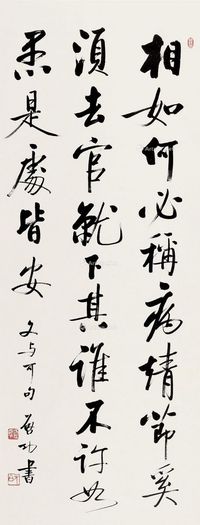 相如何必稱病靖節奚
須去官就下其誰不許如
愚是處皆安 文与可句 啟功書